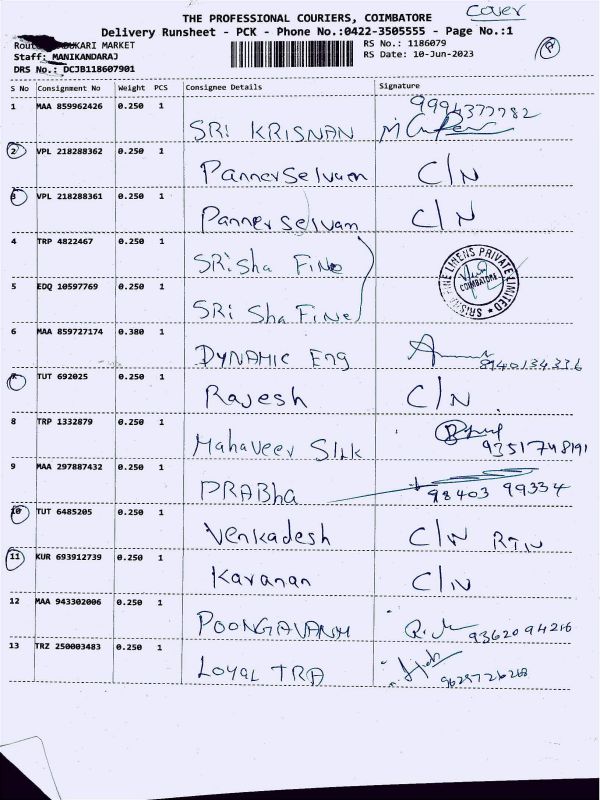 cover
THE PROFESSIONAL COURIERS, COIMBATORE
Delivery Runsheet - PCK - Phone No.:0422-3505555 - Page No.:1
UKARI MARKET
RS No.: 1186079
Staff: MANIKANDARAJ
RS Date: 10-Jun-2023
DRS No.: DCJB118607901
S No Consignment No Weight PCS Consignee Details Signature
1 MAA 859962426 0.250 1 SRI KRISNAN 9994377782
2 VPL 218288362 0.250 1 Pannerselvam C/N
3 VPL 218288361 0.250 1 Pannerselvam C/N
4 TRP 4822467 0.250 1 SRisha Fine
SRISHA FINE LINENS PRIVATE LIMITED
COIMBATORE
5 EDQ 10597769 0.250 1 SRi Sha Fine
6 MAA 859727174 0.380 1 DYNAMIC Eng 8940134336
7 TUT 692025 0.250 1 Rajesh C/N
8 TRP 1332879 0.250 1 Mahaveer Silk 9351748191
9 MAA 297887432 0.250 1 PRABha 98403 99334
10 TUT 6485205 0.250 1 Venkadesh C/N RTN
11 KUR 693912739 0.250 1 Karanan C/N
12 MAA 943302006 0.250 1 POONGAVANM 9362094216
13 TRZ 250003483 0.250 1 LOYAL TRA